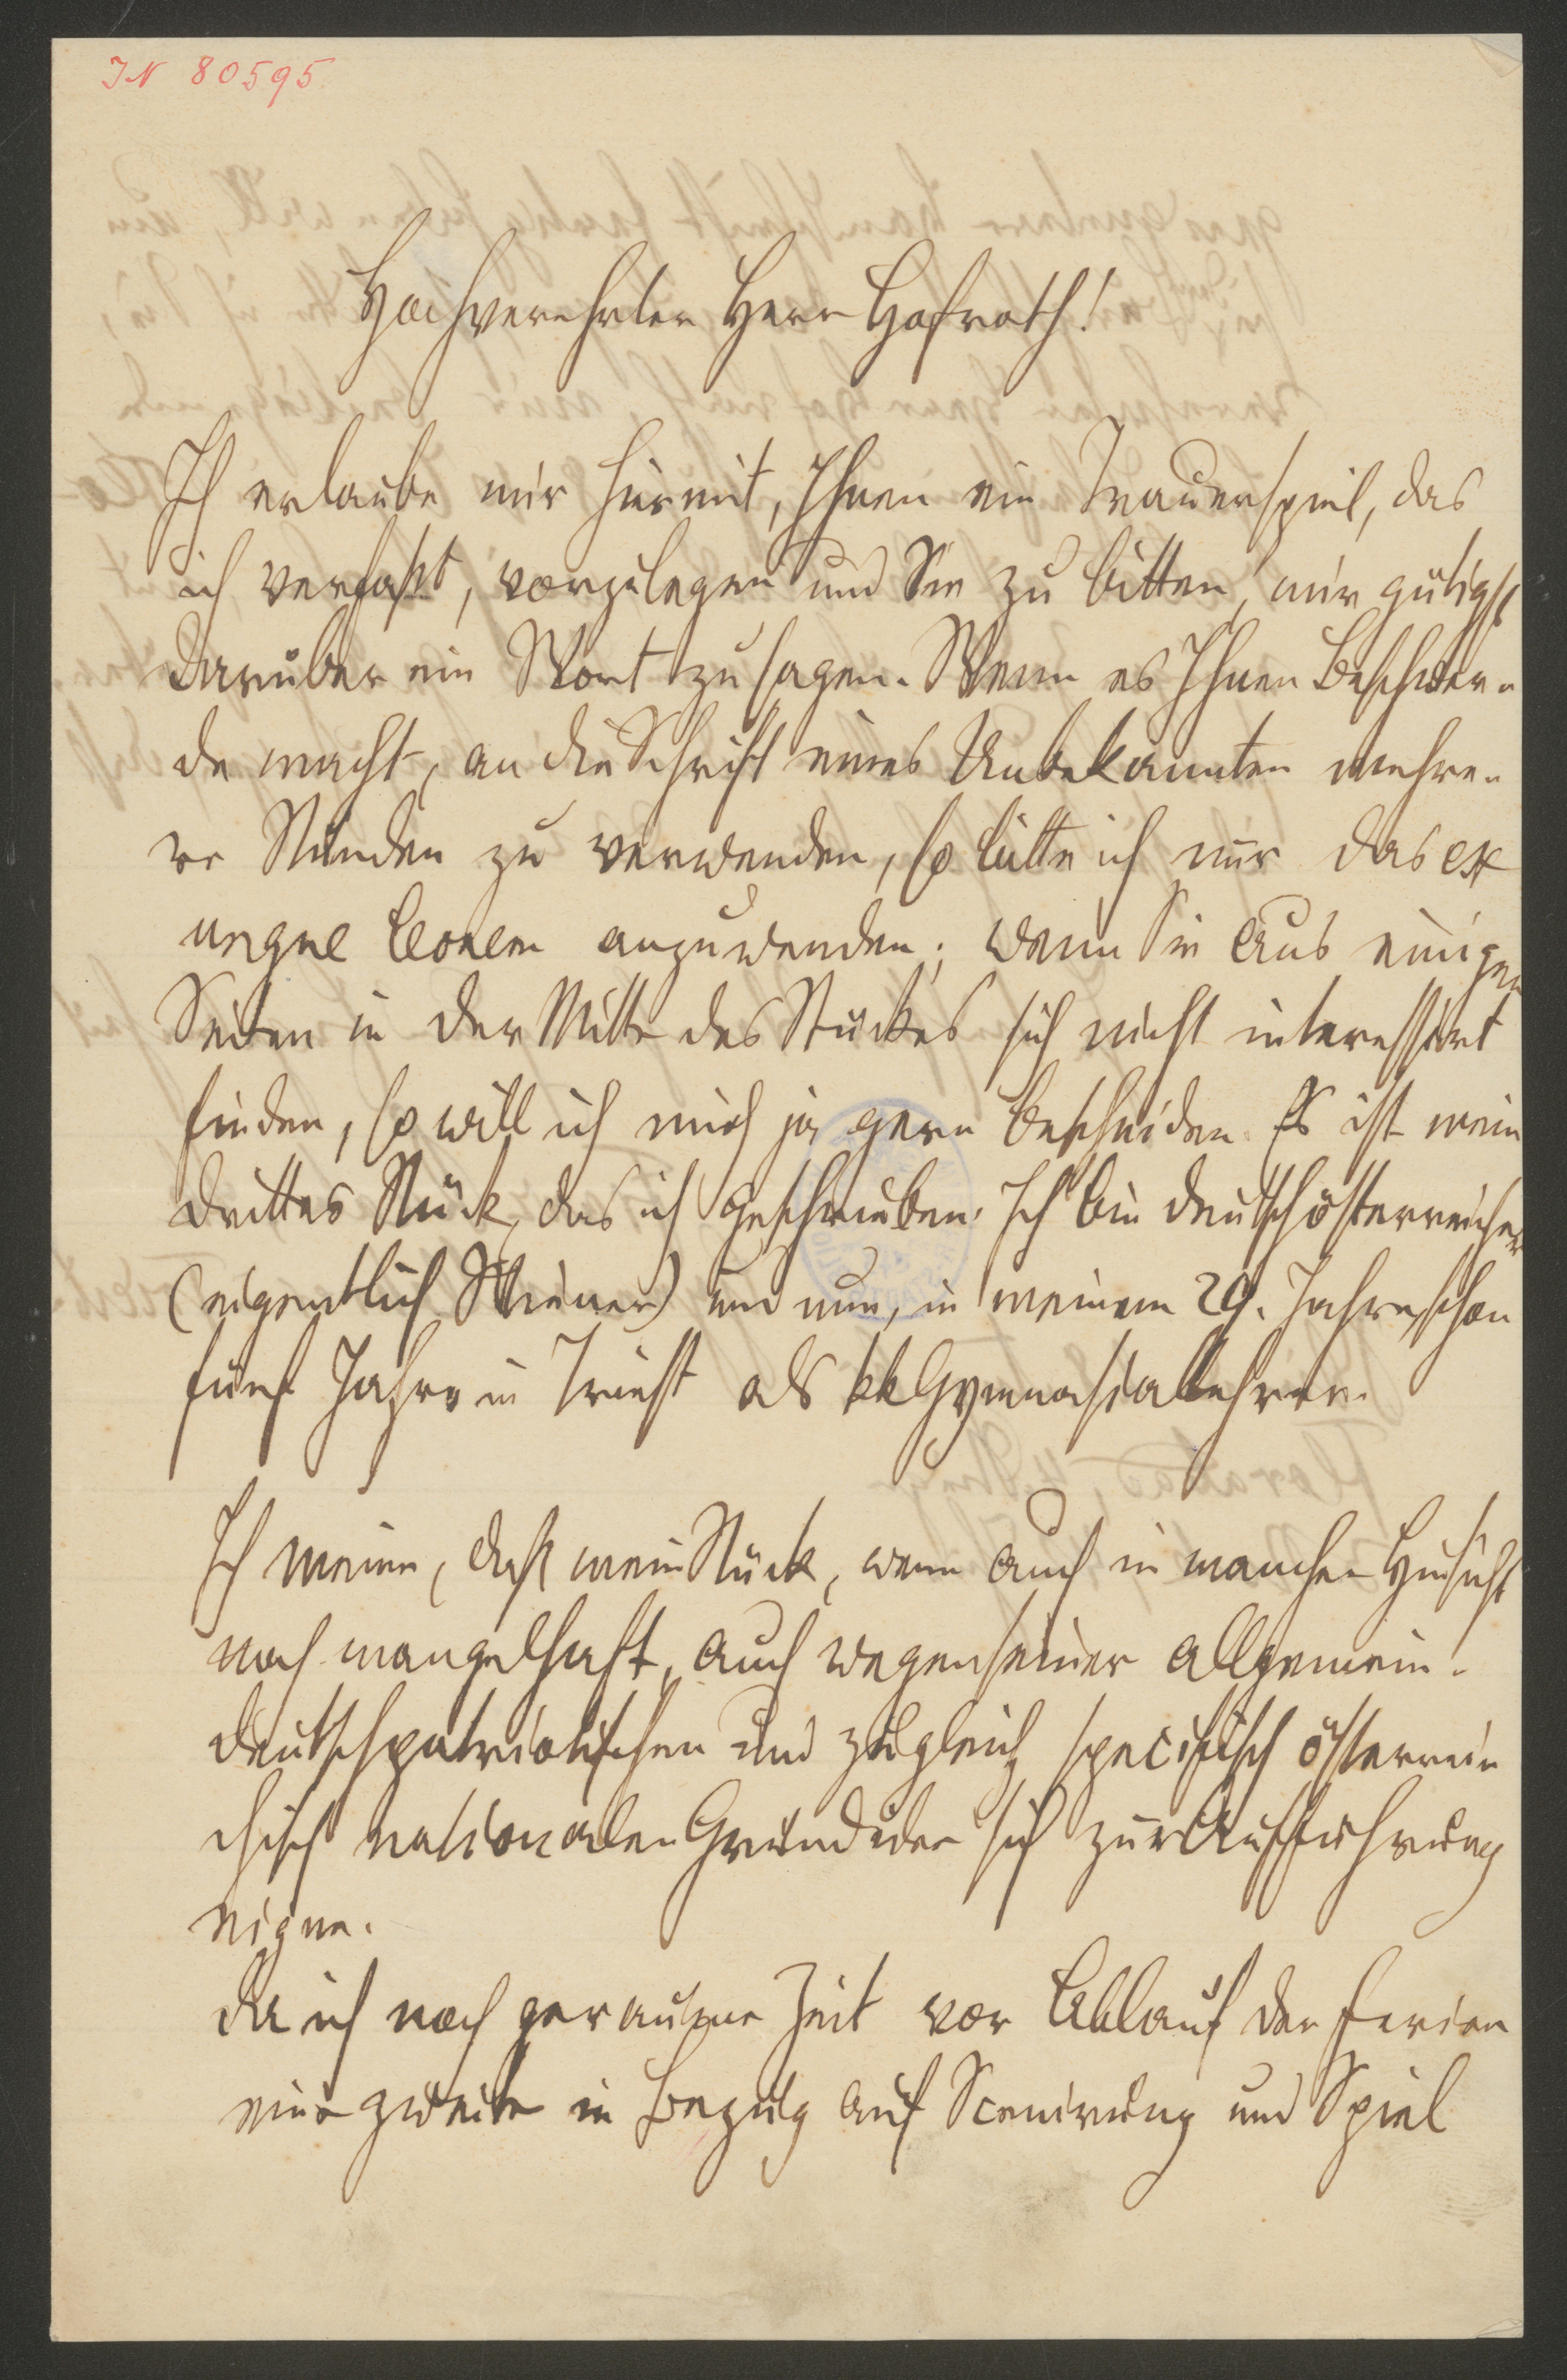 IN 80595
Hochverehrter Herr Hofrath!
Ich erlaube mir hiermit, Ihnen ein Trauerspiel, das
ich verfaßt, vorzulegen und Sie zu bitten, mir gütigst
darüber ein Wort zu sagen. Wenn es Ihnen Beschwer-
de macht, an die Schrift eines Unbekannten mehre-
re Stunden zu verwenden, so bitte ich nur das ex
ungue leonem anzuwenden; wenn Sie aus einigen
Seiten in der Mitte des Stückes sich nicht interessirt
finden, so will ich mich ja gern bescheiden. Es ist mein
drittes Stück, das ich geschrieben. Ich bin Deutschösterreicher
(eigentlich Wiener) und nun, in meinem 29. Jahre schon
fünf Jahre in Triest als kk Gymnasiallehrer.
Ich meine, daß mein Stück, wenn auch in mancher Hinsicht
noch mangelhaft, auch wegen seiner allgemein-
deutschpatriotischen und zugleich specifisch österrei-
chisch nationalen Grundidee sich zur Aufführung
eigne.
Da ich noch geraume Zeit vor Ablauf der Ferien
eine zweite in Bezug auf Scenirung und Spiel